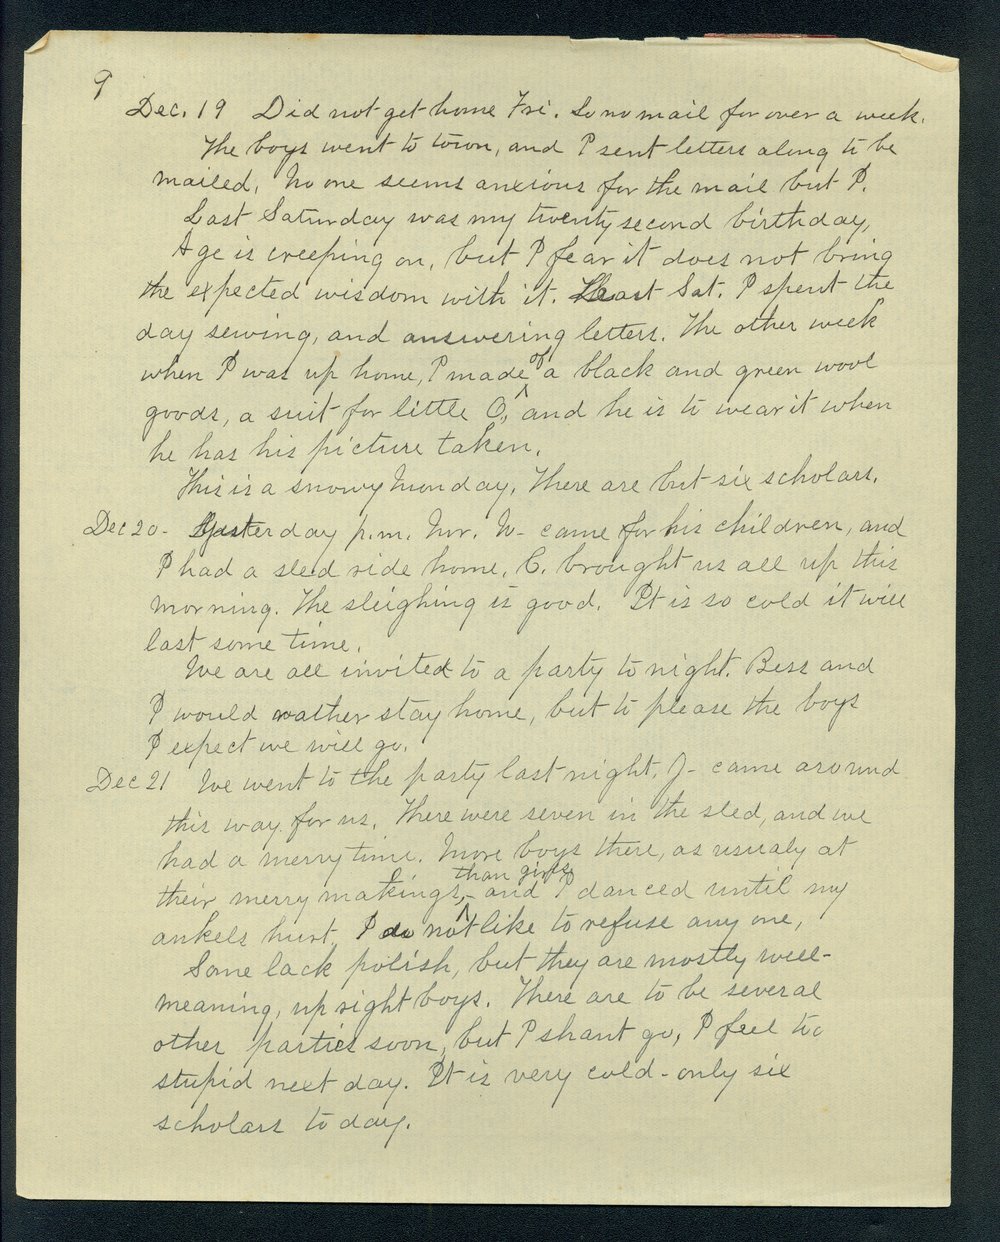 9
Dec. 19 Did not get home Fri. So no mail for over a week.
The boys went to town, and I sent letters along to be
mailed. No one seems anxious for the mail but I.
Last Saturday was my twenty second birthday,
Age is creeping on, but I fear it does not bring
the expected wisdom with it. Last Sat. I spent the
day sewing, and answering letters. The other week
when I was up home, I made of a black and green wool
goods, a suit for little O., and he is to wear it when
he has his picture taken.
This is a snowy Monday. There are but six scholars.
Dec 20 - Yesterday p.m. Mr. N- came for his children, and
I had a sled ride home. C. brought us all up this
morning. The sleighing is good. It is so cold it will
last some time.
We are all invited to a party to night. Bess and
I would rather stay home, but to please the boys
I expect we will go.
Dec 21 We went to the party last night. J- came around
this way for us. There were seven in the sled, and we
had a merry time. More boys there, as usualy at
their merry makings, than girls - and I danced until my
ankels hurt. I do not like to refuse any one,
Some lack polish, but they are mostly well-
meaning, up right boys. There are to be several
other parties soon, but I shant go, I feel to
stupid next day. It is very cold - only six
scholars to day.